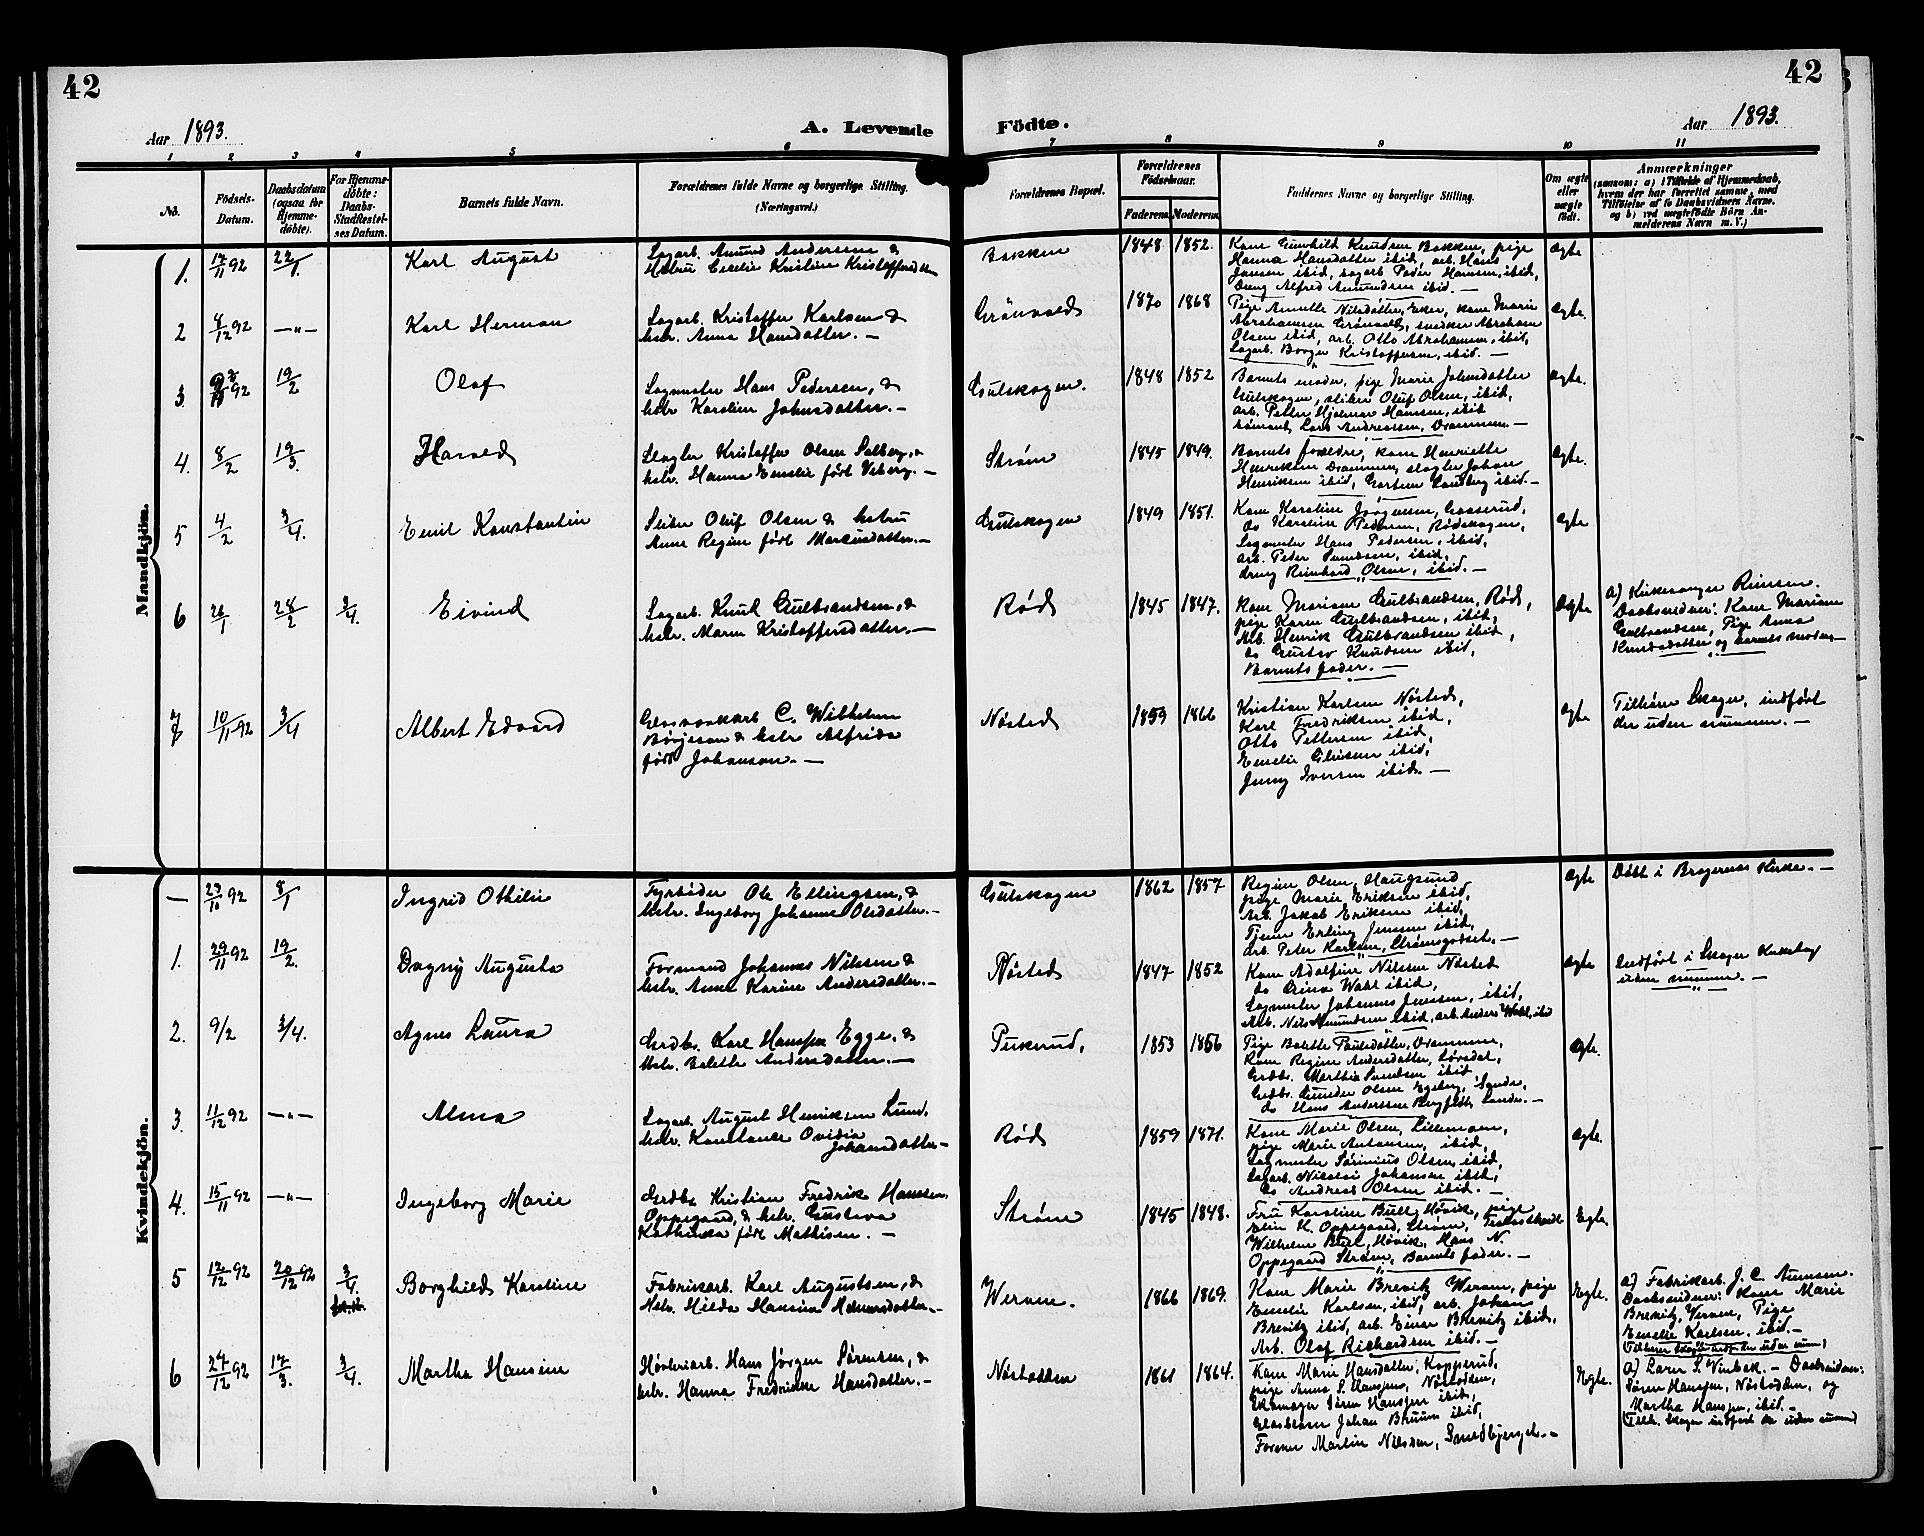 42
42
Aar 1893.
A. Levende
Födte.
Aar 1893.
1 2 3 4 5 6 7 8 9 10 11
No.
Födsels-
Datum.
Daabsdatum
(ogsaa for
Hjemme-
döbte).
For Hjemme-
döbte:
Daabs-
Stadfæstel-
ses Datum.
Barnets fulde Navn.
Forældrenes fulde Navne og borgerlige Stilling.
(Næringsvei.)
Forældrenes Bopæl.
Forældrenes
Födselsaar.
Faderens. Moderens.
Faddernes Navne og borgerlige Stilling.
Om ægte
eller
uægte
födt.
Anmærkninger
(saasom: a) i Tilfælde af Hjemmedaab,
hvem der har forrettet samme, med
Tilföielse af to Daabsvidners Navne.
og b) ved uægtefödte Börn An-
melderens Navn m. V.)
Mandkjön.
1. 17/11 92 22/1 Karl August
Sagarb. Amund Andersen &
Hstru Emelie Kristine Kristoffersdtr
Bakken 1848 1852.
Kone Gunhild Knudsen Bakken, pige
Hanna Hansdatter ibid, arb. Hans
Jansen ibid, sagarb Peder Hansen, ibid,
Dreng Alfred Amundsen ibid. —
Ægte
2 4/12 92 —"— Karl Herman
Sagarb. Kristoffer Karlsen &
hstr. Anna Hansdatter. —
Grönvold 1870 1868
Pige Annette Nilsdatter, Eker, kone Marie
Abrahamsen Grönvold, snedker Abraham
Olsen ibid, arb. Otto Abrahamsen, ibid,
Sagarb. Borger Kristoffersen, ibid. —
Ægte.
3. 92 19/2 Olaf
Sagmester Hans Pedersen, &
hstr Karoline Johnsdatter. —
Gulskogen. 1848 1852
Barnets moder, pige Marie Johnsdatter
Gulskogen, sliber Oluf Olsen, ibid,
arb. Petter Hjelmar Hansen, ibid
sömand Lars Andreassen, Drammen. —
Ægte.
4. 8/2 19/3. Harald
Slagter Kristoffer Olsen Solberg, &
hstr. Hanna Emelie født Viberg. —
Strøm 1845 1849.
Barnets foreldre, kone Henriette
Henriksen Drammen, slagter Johan
Henriksen ibid, ibid. —
Ægte.
5 4/2 3/4. Emil Konstantin
Sliber Oluf Olsen & hstru
Anne Regine født Markusdatter. —
Gulskogen 1849 1851.
Kone Karoline Jörgensen, Gosserud,
do Karoline Pedersen, Rødskogen,
Sagmester Hans Pedersen, ibid,
arb. Peder ibid,
dreng Reinhard Olsen, ibid. —
Ægte
6 26/1 28/2 3/4. Eivind
Sagarb. Knut Gulbrandsen, &
hstr. Maren Kristoffersdatter. —
Rød 1845 1847.
Kone Mariane Gulbrandsen, Rød,
pige Karen Gulbrandsen, ibid,
Arb. Henrik Gulbrandsen ibid,
do Gustav Knudsen ibid,
Barnets fader. —
Ægte
a) Kirkesanger Riiesen.
Daabsvidner: Kone Mariane
Gulbrandsen, Pige Anna
Knudsdatter og barnets moder. —
7 10/11 92 3/4 Albert Edvard
C. Wilhelm
Börjeson & hstr Alfrida
født Johanson. —
Nøsted 1859 1866
Kristian Karlsen Nøsted,
Karl Fredriksen ibid,
Otto Pettersen ibid,
Emelie ibid,
Jenny Iversen ibid. —
Ægte
Tilhører Skoger, indført
der uden nummer. —
Kvindekjön.
— 23/10 92 8/1 Ingrid Othilie
Fyrbøder Ole Ellingsen, &
hstr. Ingeborg Johanne Olsdatter. —
Gulskogen 1862 1857
Regine Olsen, Haugsund
pige Marie Eriksen ibid,
Arb. Jakob Eriksen ibid,
Tjener Erling Jensen ibid,
arb. Peter Karlsen, Strømsgodset. —
Ægte
Døbt i Bragernes Kirke. —
1. 29/11 92 19/2. Dagny Augusta
Formand Johannes Nilssen &
hstr. Anne Karine Andersdatter. —
Nøsted 1847 1852
Kone Adolfine Nilssen Nøsted
do Wahl ibid,
Sagmester Johannes Jenssen, ibid,
Arb. Nils Amundsen ibid, arb. Anders Wahl, ibid
Ægte
Indført i Skoger Kirkebog
uden nummer. —
2. 9/2 3/4. Agnes Laura
Grdbr. Karl Hanssen Egge, &
hstr. Bolette Andersdatter. —
Pukerud, 1853 1856
Pige Bolette Paulsdatter, Drammen,
Kone Regine Andersdatter,
Grdbr. Mathias ibid
Grdbr. Gunder Olsen Egeberg, Sande,
do Hans Andersen Sande. —
Ægte.
3. 11/12 92 —"— Alma
Sagarb. August Henriksen Lund,
hstr. Konstance Ovidia
Johansdatter —
Rød 1859 1871.
Kone Marie Olsen, Lillemoen,
pige Marie Antonsen, ibid,
Sagmester Sørinius Olsen, ibid,
Sagarb. Nicolai Johansen ibid,
do Andreas Olsen ibid. —
Ægte.
4. 15/11 92 —"— Ingeborg Marie
Grdbr Kristian Fredrik Hansen
Oppegaard, & hstr. Gustava
Kathinka født Mathisen. —
Strøm 1845 1848.
Fru Karoline Bull, Høvik, pige
Elin K. Oppegaard, Strøm,
Wilhelm Bull, Høvik, Hans N.
Oppegaard Strøm, Barnets fader. —
Egte.
5 12/12 92 20/12 92 3/4. Borghild Karoline
Fabrikarb. Karl Augustsen, &
Hstr. Hilda Hansine —
Werven. 1866 1869.
Kone Marie Brevitz Werven, pige
Emelie Karlsen, ibid, arb. Johan
Brevitz ibid, arb. Einar Brevitz ibid,
Arb. Olaf Richardsen ibid. —
Egte.
a) Fabrikarb. J. C. Aumsen.
Daabsvidner: Kone Marie
Brevitz, Werven, Pige
Emelie Karlsen. ibid. —
6 24/12 92 17/3. 3/4. Martha Hansine
Høvleriarb. Hans Jörgen Sørensen, &
hstr. Hanna Fredrikke Hansdatter. —
Nøstodden 1861 1864.
Kone Marie Hansdatter, Kopperud,
pige Anna S. Hanssen, Nøstodden,
Søren Hanssen ibid,
Johan Bruun ibid,
Martin Nilssen, —
Egte.
a) Lærer S. Vinbek. — Daabsvidner:
Søren Hanssen, Nøstodden, og
Martha Hanssen, ibid. —
(Tilh. Skoger indført der uden numer)